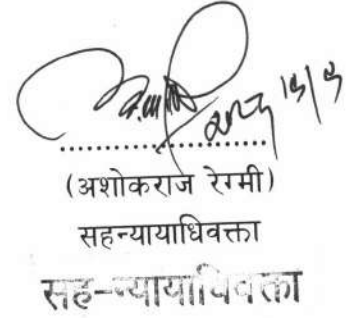 ....................
(अशोकराज रेग्मी)
सहन्यायाधिवक्ता
सह-न्यायाधिवक्ता